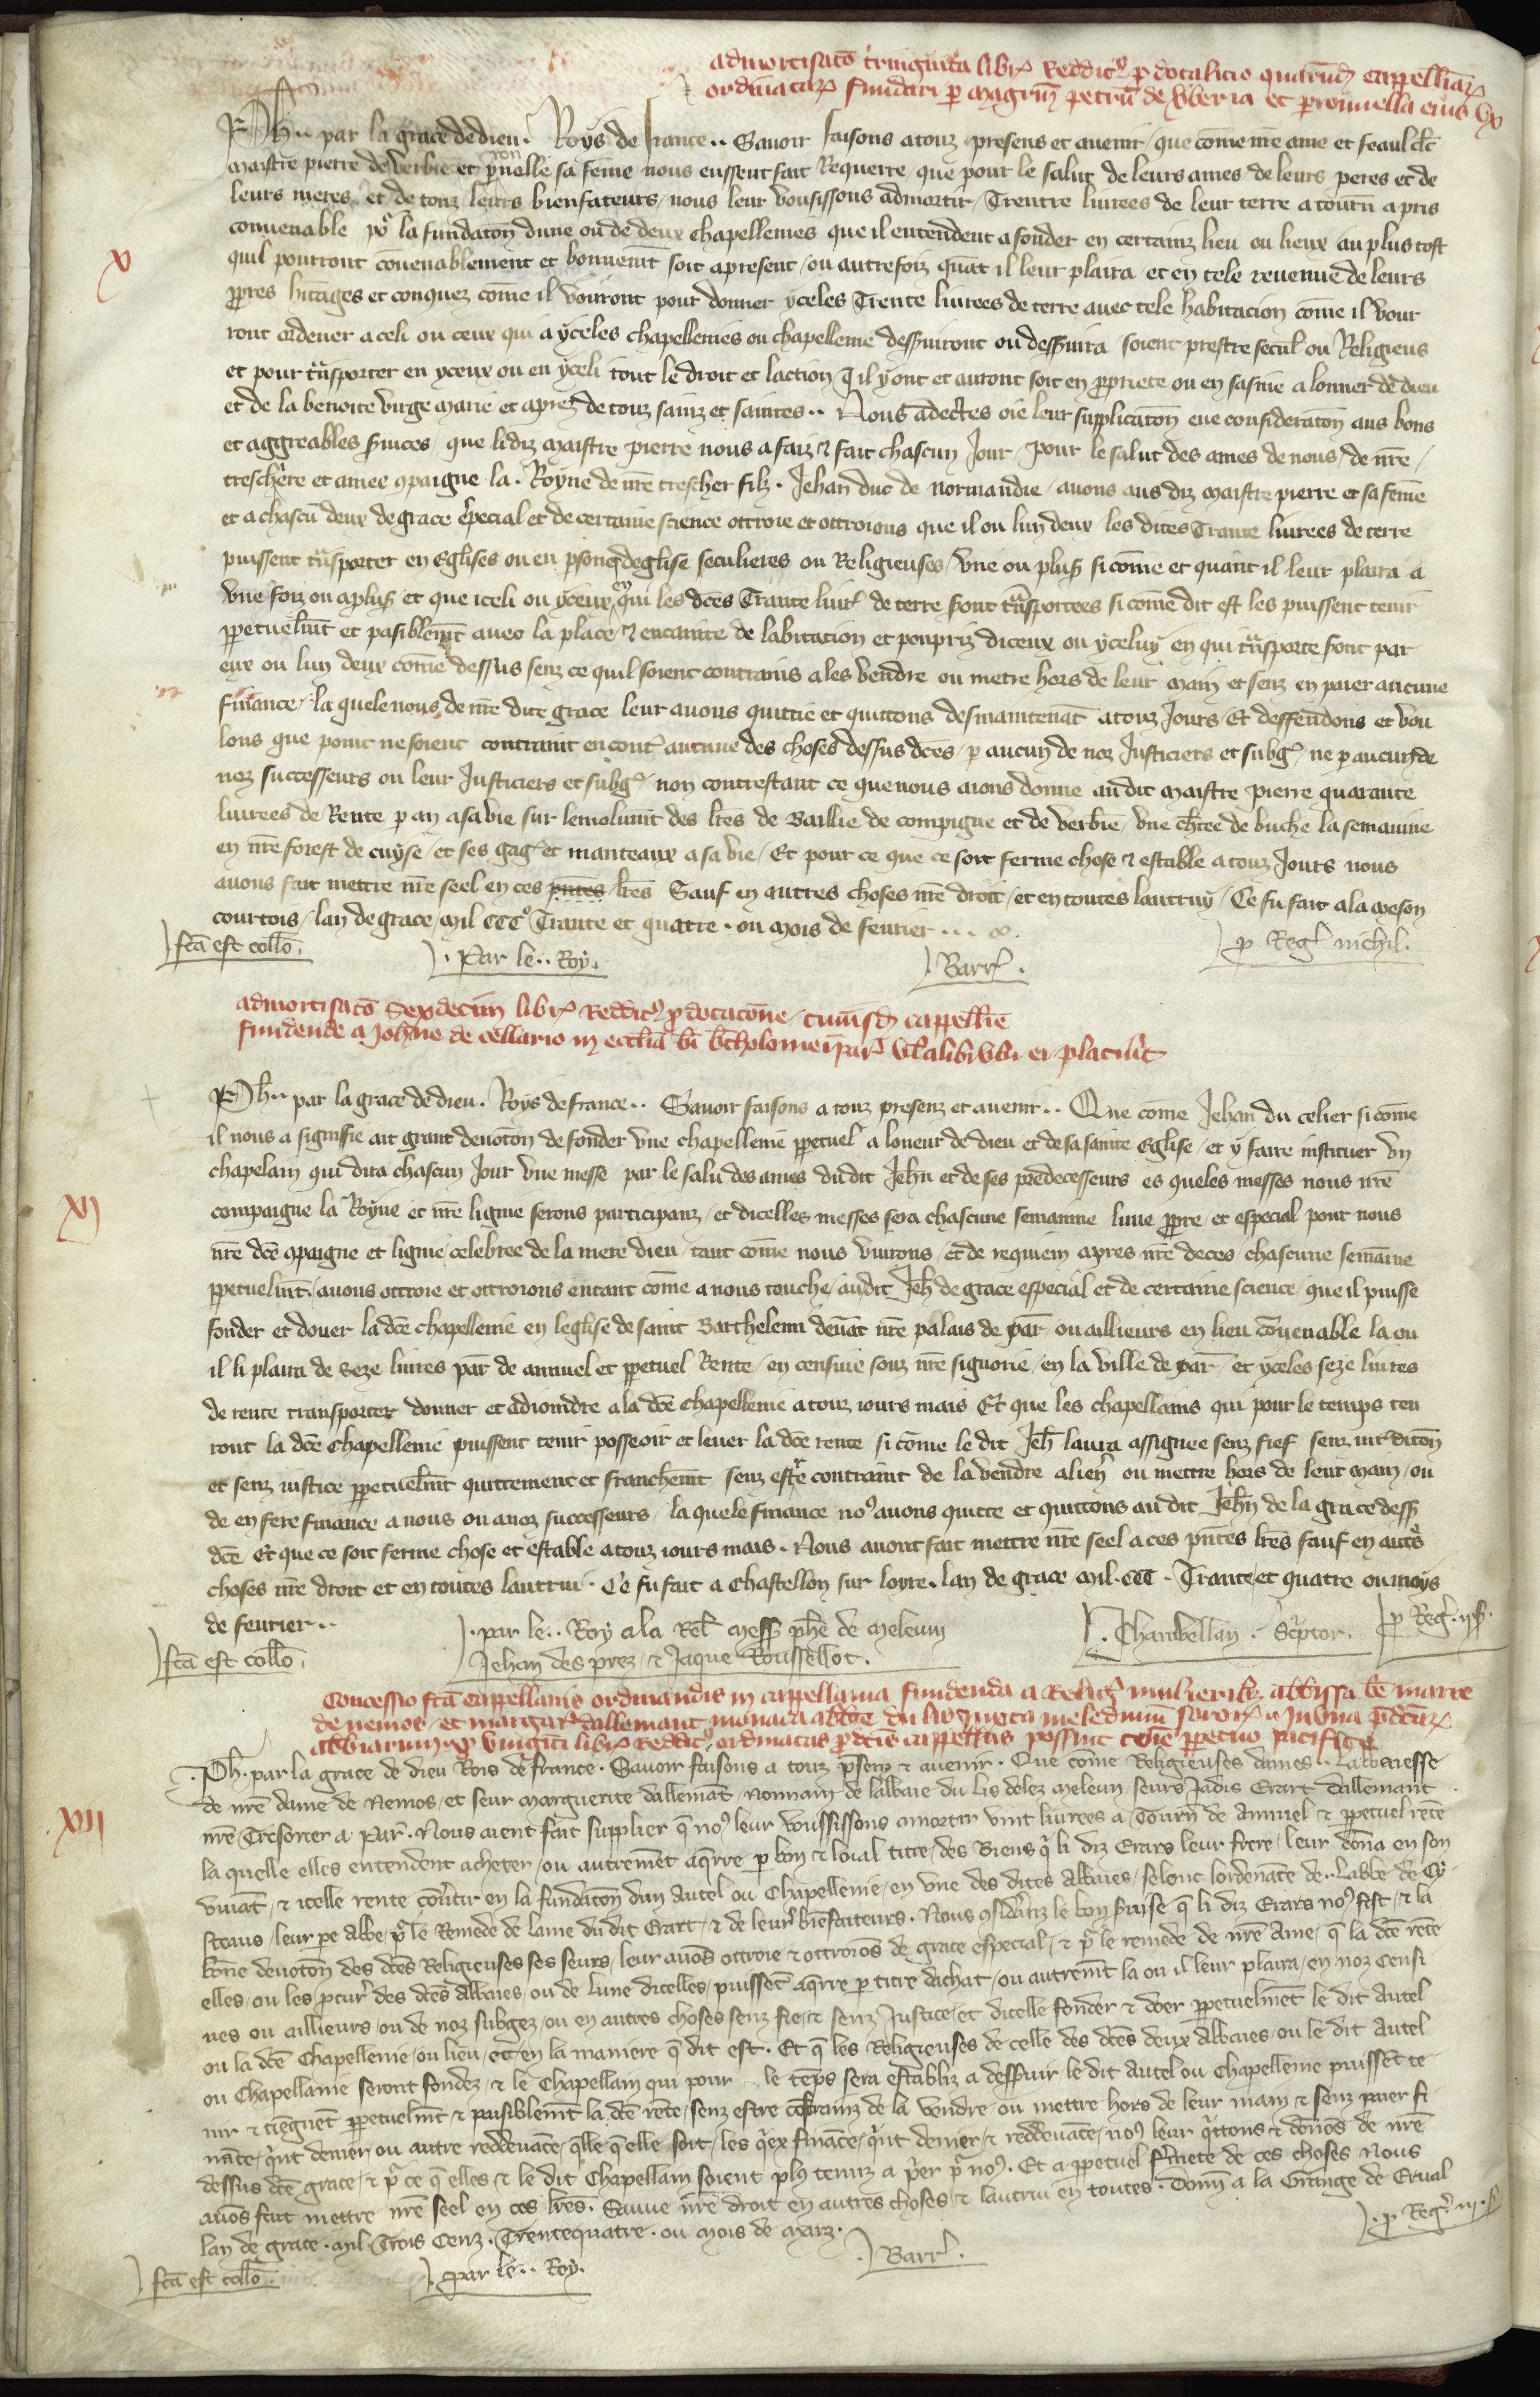 admortisacō tringinta libr̃ Reddit᷒ p dotalicio quarūd cappelliar̃
ordinatar̃ fundari p magrm̃ petrū de Vberia et peronnella eius vx
Ph.. par la grace de dieu. Roys de france.. Sauoir faisons a touz presens et auenir, que cōme nr̃e ame et feaul clc̃
maistre pierre de verbie et pronnelle sa fēme nous eussent fait Requerre que pour le salut de leurs ames de leurs peres et de
leurs meres, et de touz leurs bienfateurs, nous leur vousissons admortir, Trentre liurees de leur terre a tourn̄ a pris
conuenable po᷒ la fundatōn dune ou de deux chapellenies que il entendent a fonder en certainz lieu ou lieux au plus tost
X
quil pourront cōuenablement et bonnemt̄ soit apresent, ou autrefoiz quāt il leur plaira et en tele reuenue de leurs
ppres hitages et conquez cōme il vouront pour donner yceles Trente liurees de terre auec tele habitacion cōme il vour
ront ordener a celi ou ceux qui a yceles chapellenies ou chapellenie desseruiront ou desseruira soient prestre secul̃ ou Religieus
et pour trãsporter en yceux ou en yceli tout le droit et laction q̃ il y ont et auront soit en ppriete ou en saisine a lonner de dieu
et de la benoite virge marie et aprez de touz sainz et saintes.. Nous adecrtes oie leur supplicatōn eue consideratōn aus bons
et aggreables seruices, que lidiz maistre pierre nous a faiz ⁊ fait chascun Jour, pour le salut des ames de nous, de nr̃e,
treschere et amee cpaigne la. Royne de nr̃e trescher filz. Jehan duc de normandie, auons aus diz maistre pierre et sa fēme
et a chascū deux de grace especial et de certaine science ottroie et ottroions que il ou lun deux les dites Trante liurees de terre
puissent trãsporter en Eglises ou en psones deglise seculieres ou Religieuses, vne ou plus̃ si cōme et quant il leur plaira a
vne foiz ou a plus̃ et que iceli ou yceux a qui les dc̄es Trante liur̃ de terre sont trãsportees si cōme dit est les puissent tenir
ppetuelmt̄ et pasiblemt̄ auec la place, ⁊ encainte de labitacion et pourpriz diceux ou yceluy en qui trãsporte sont par
eux ou lun deux cōme dessus senz ce quil soient contrains a les vendre ou metre hors de leur main et senz en paier aucune
finance, la quele nous de nr̃e dite grace leur auons quittie et quittons desmaintenāt a touz Jours, Et deffendons et vou
lons que point ne soient contraint encont̃ aucune des choses dessus dc̄es, p aucun de noz Justiciers et subg᷒, ne p aucun de
noz successeurs ou leur Justiciers et subg᷒, non contrestant ce que nous aions donne au dit maistre pierre quarante
liurees de Rente p an a sa vie sur lemolumt̄ des lr̃es de Baillie de compigne et de verbrie, vne chr̃tee de buche la semaine
en nr̃e forest de cuyse, et ses gag᷒ et manteaux a sa vie, Et pour ce que ce soit ferme chose ⁊ estable a touz Jours nous
auons fait mettre nr̃e seel en ces pn̄tes lr̃es Sauf en autres choses nr̃e droit, et en toutes lautruy, Ce fu fait a la meson
courtois, lan de grace, mil CCC᷒ Trante et quatre. ou mois de feurier...
fc̄a est collō. .Par le.. Roy. Barr̃. p Reg̃ nichil.
admortisacō Sexdecim libr̃ Reddit᷒ p dotacōne, cuiusd̃ cappellie
fundende a Johne de cellario in ecclia bi bartholomei par̃ vl̃ alibi vbi ei placuit̃
Ph.. par la grace de dieu. Roys de france.. Sauoir faisons a touz presenz et auenir.. Que cōme Jehan du celier si cōme
il nous a signifie ait grant deuotōn de fonder vne chapellenie ppetuel a loneur de dieu et de sa sainte Eglise, et y faire instituer vn
chapelain qui dira chascun Jour vne messe par le salu des ames du dit Jehn̄ et de ses predecesseurs es queles messes nous nr̃e
XI
compaigne la Royne et nr̃e lignie serons participanz, et dicelles messes sera chascune semaine lune ppre, et especial pour nous
nr̃e dc̄e cpaigne et lignie celebree de la mere dieu, tant cōme nous viurons, et de requiem apres nr̃e deces, chascune semaine
ppetuelmt̄. auons ottroie et ottroions entant cōme a nous touche, audit Jeh̃ de grace especial et de certaine science, que il puisse
fonder et douer la dc̄e chapellenie en leglise de saint Barthelemi deuāt nr̃e palais de par̃ ou aillieurs en lieu cōuenable la ou
il li plaira de seze liures par̃ de annuel et ppetuel Rente, en censiue souz nr̃e signorie, en la ville de par̃ et yceles seze liures
de rente transporter donner et adioindre a la dc̄e chapellenie a touz iours mais Et que les chapellains qui pour le temps ten
ront la dc̄e chapellenie puissent tenir posseoir et leuer la dc̄e rente si cōme le dit Jeh̃ laura assignee senz fief senz iur̃ditōn
et senz iustice ppetuelmt̄ quittement et franchemt̄ senz estre contraint de la vendre alien̄ ou mettre hors de leur main, ou
de en fere finance a nous ou a noz successeurs, la quele finance no᷒ auons quitte et quittons au dit Jehn̄ de la grace dess̄
dc̄e Et que ce soit ferme chose et estable a touz iours mais. Nous auons fait mettre nr̃e seel a ces pn̄tes lr̃es sauf en autr̃s
choses nr̃e droit et en toutes lautrui. Ce fu fait a Chastellon sur loyre. lan de grace mil. CCC. Trante et quatre ou moys
de feurier..
fc̄a est collō. .par le.. Roy a la Rel̃ mess̄ phe de meleum Jehan des prez, ⁊ Jaque Roussellot. .Chambellan. Scptor. p Reg̃.
Concessio fc̄a Cappellanis ordinandis in cappellania fundenda a Relig̃ mulieribz abbissa be marie
de nemos, et margar̃ dallemant monacha abbie du lis iuxta meledunū sororz̃ in vna pdcar̃
abbiarum, xx viginti libr̃ Reddit᷒ ordinatas pdcis cappellis possint tenē ppetuo pacifice
.Ph̃. par la grace de dieu Rois de france. Sauoir faisons a touz psenz ⁊ auenir. Que cōme Religieuses dames.. Labbesse
de nr̃e dame de Nemos, et seur marguerite dallemāt, Nonnain de labbaie du Lis delez meleun seurs Jadis Erart dallemant
XII
nr̃e Tresorier a Par̃. Nous aient fait supplier q̄ no᷒ leur voussissons amortir vint liurees a Tourn̄ de Annuel ⁊ ppetuel rēte
la quelle elles entendent acheter, ou autremēt aqrre p bon ⁊ loial titre, des Biens q̄ li diz Erars leur frere, leur dōna en son
viuāt, ⁊ icelle rente cōu᷒tir en la fundatōn dun Autel ou Chapellenie, en vne des dites Abbaies, selonc lordenāce de.. Labbe de Cy
steaus, leur pe abbe, p᷒ le Remede de lame du dit Erart, ⁊ de leur᷒ biēfaiteurs. Nous cōsid᷒anz le bon seruise q̄ li diz Erars no᷒ fist, ⁊ la
bōne deuotōn des dc̄es Religieuses ses seurs, leur auōs ottroie ⁊ ottroiōs de grace especial, ⁊ p᷒ le remede de nr̃e Ame, q̄ la dc̄e rēte
elles, ou les pcur᷒ des dc̄es Abbaies, ou de lune dicelles, puissēt aqrre p titre dachat, ou autremt̄ la ou il leur plaira, en noz censi
ues ou aillieurs, ou de noz subgez, ou en autres choses senz fie, ⁊ senz Justice, et dicelle fonder ⁊ doer ppetuelmēt le dit Autel
ou la dc̄e Chapellenie, ou lieu, et en la maniere q̄ dit est. Et q̄ les Religieuses de celle des dc̄es deux Abbaies, ou le dit Autel
ou Chapellanie seront fondez, ⁊ le Chapellain qui pour le tēps sera establiz a desseruir le dit Autel ou Chapellenie puissēt te
nir ⁊ tiegnēt ppetuelmt̄ ⁊ paisiblemt̄ la dc̄e rēte, senz estre cōtrainz de la vendre, ou mettre hors de leur main ⁊ senz paier fi
nāce, q̄nt denier, ou autre reddeuāce, q̄lle q̄ elle soit, les q̄ex fināce, q̄nt denier, ⁊ reddeuāce, no᷒ leur q̄ttons ⁊ dōnōs de nr̃e
dessus dc̄e grace, ⁊ p᷒ ce q̄ elles, ⁊ le dit Chapellain soient pl᷒ tenuz a p᷒er p᷒ no᷒. Et a ppetuel f᷒mete de ces choses Nous
auōs fait mettre nr̃e seel en ces lr̃es. Sauue nr̃e droit en autres choses, ⁊ lautrui en toutes. Donn̄ a la Grange de Erual
lan de grace. mil Trois Cenz. Trentequatre. ou mois de marz.
fc̄a est collō. .par le.. Roy. .Barr̃. .p Reg̃.